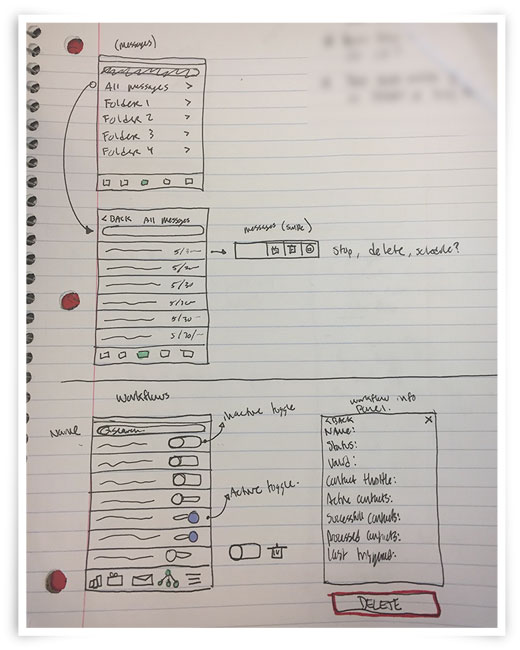 (messages)
All messages >
Folder 1 >
Folder 2 >
Folder 3 >
Folder 4 >
< BACK All Messages
messages (swipe)
5/3
5/20
5/30
5/20
5/20
5/20/
Stop, delete, schedule?
Workflows
Inactive toggle
Name
search
Active toggle.
workflow info
Panel.
< BACK X
Name:
Status:
Valid:
Contact throttle:
Active contacts:
Successful contacts:
Processed contacts:
Last triggered:
DELETE